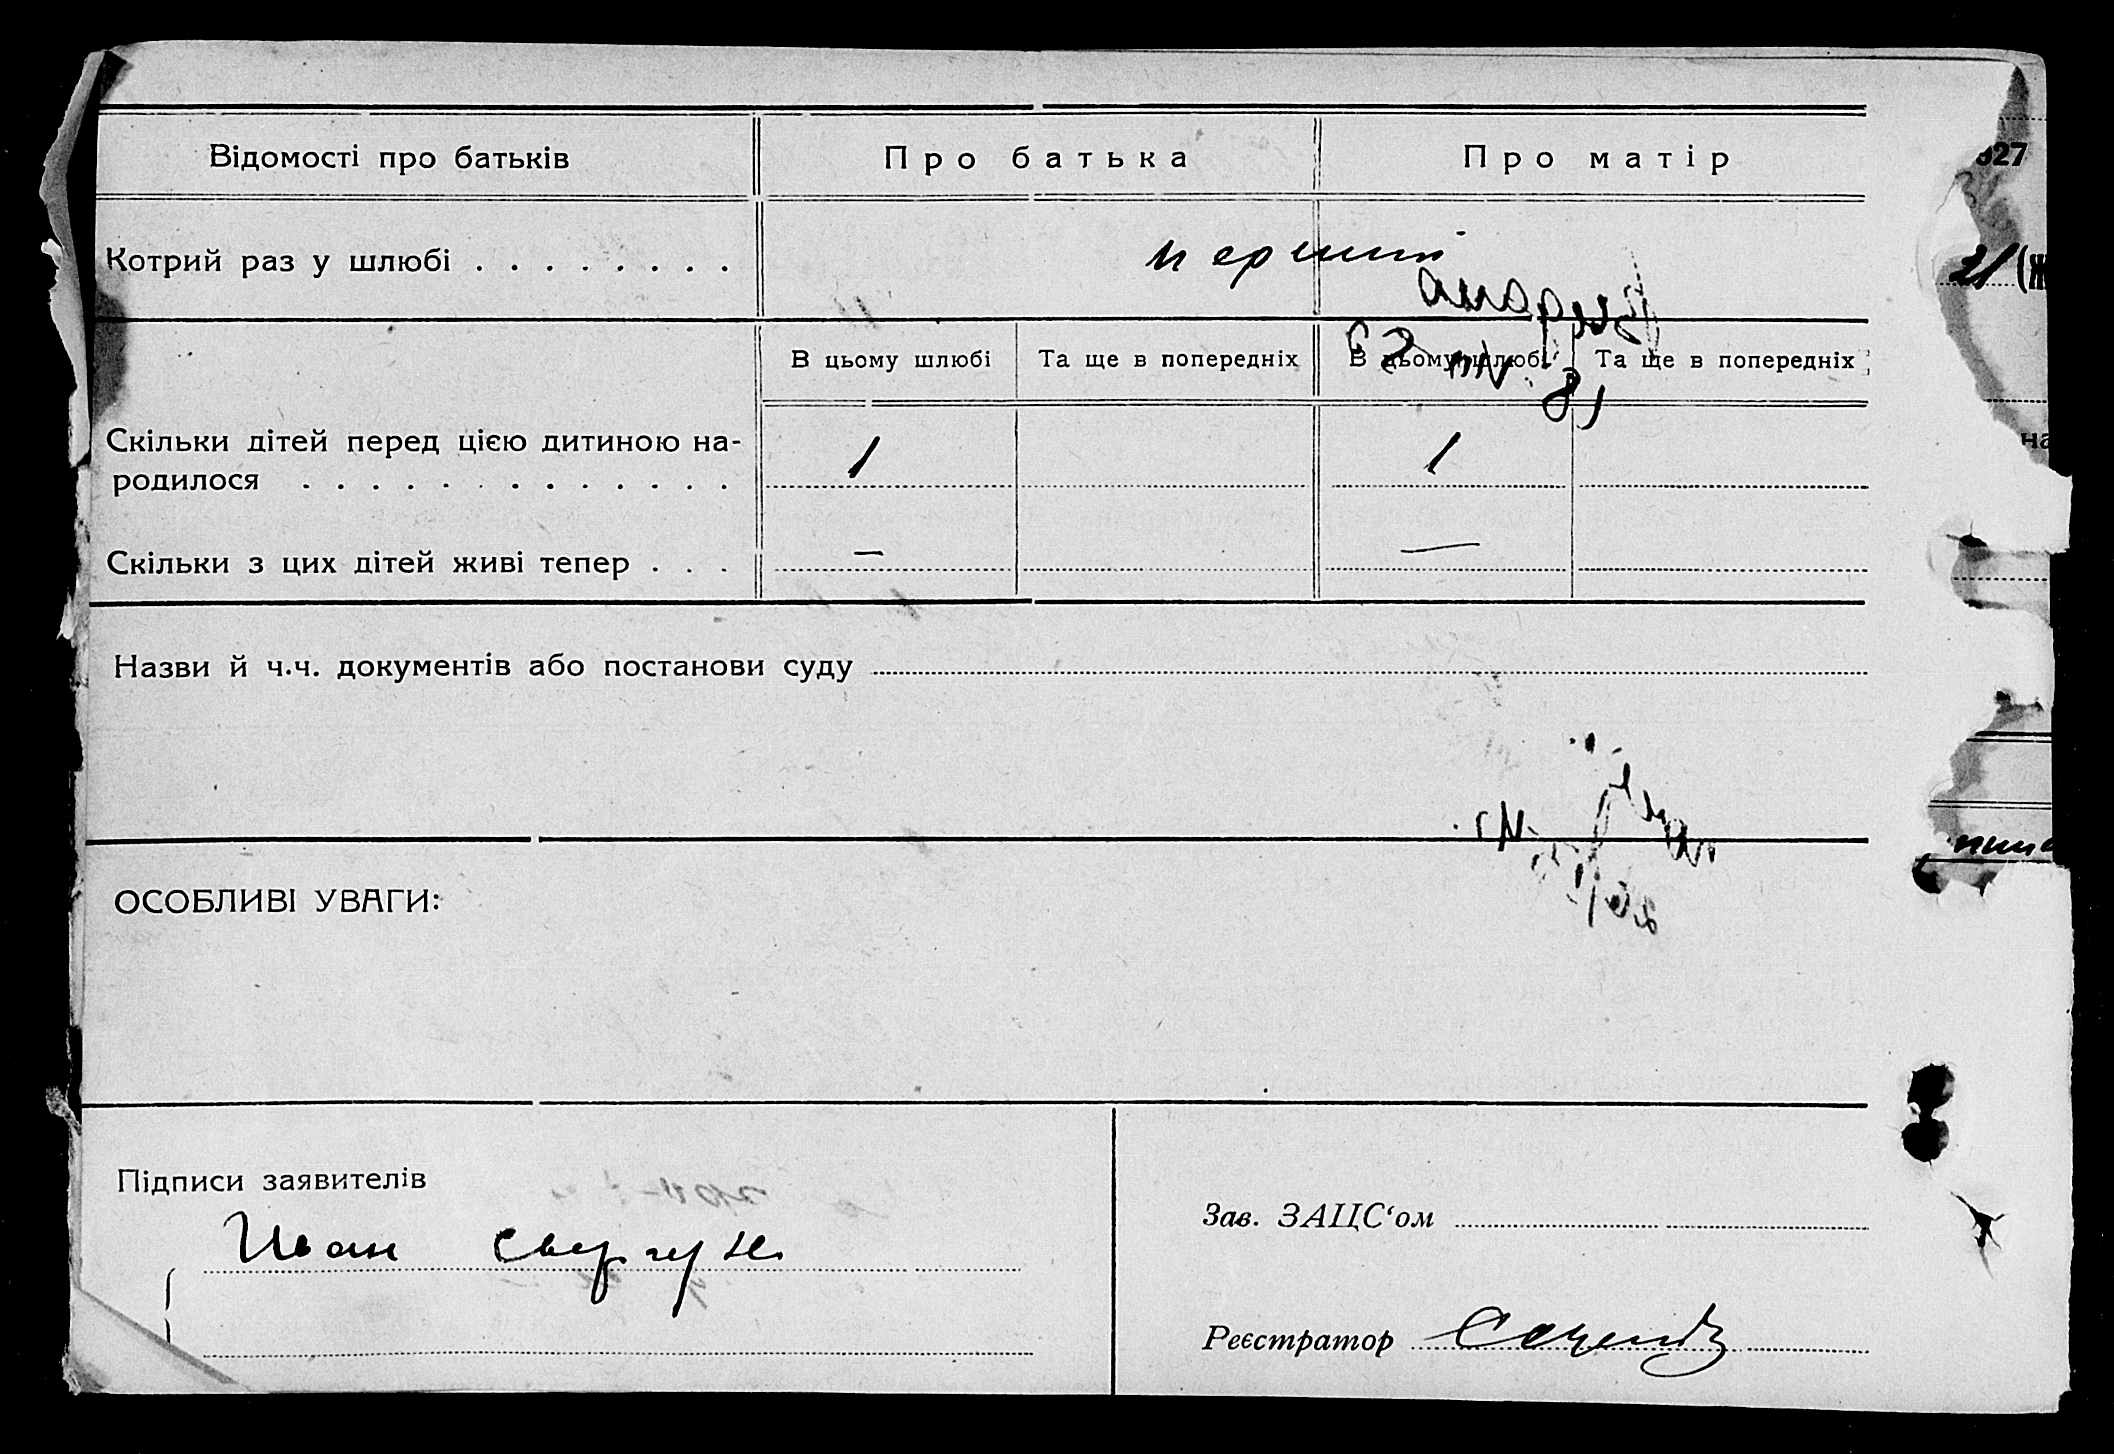 Відомості про батьків
Про батька
Про матір
Котрий раз у шлюбі . . . . . . . .
перший
В цьому шлюбі
Та ще в попередніх
В цьому шлюбі
Та ще в попередніх
Скільки дітей перед цією дитиною на-
родилося . . . . . . . . . . . . .
1
1
Скільки з цих дітей живі тепер . . .
—
—
Назви й ч.ч. документів або постанови суду
ОСОБЛИВІ УВАГИ:
Підписи заявителів
Иван Свергун
Зав. ЗАЦС‘ом
Реєстратор
27
21 (Ж
на